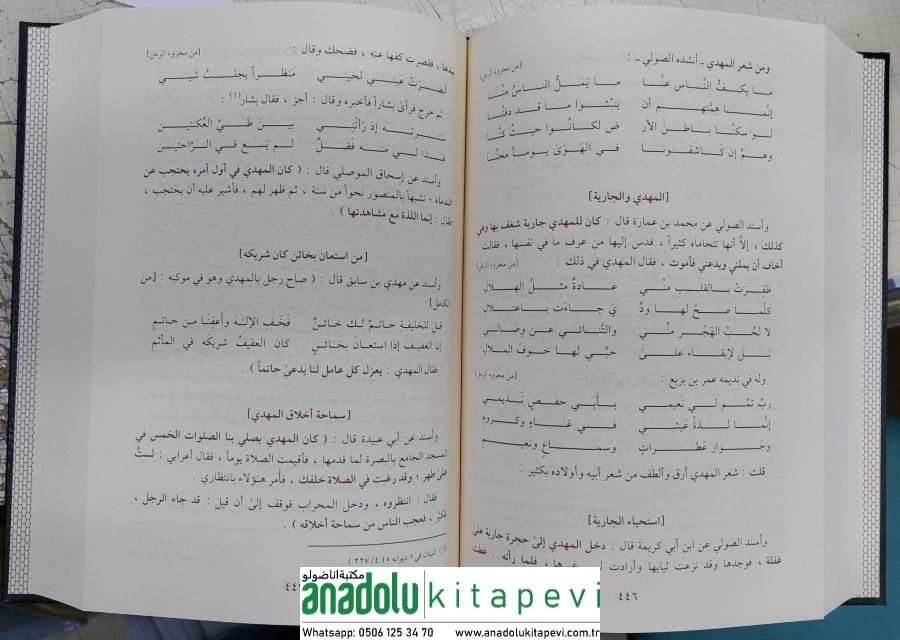 ومن شعر المهدي ـ أنشده الصولي ـ :
[من مجزوء الرمل]
ما يكفُّ النَّاس عنَّا ما يَمَلُّ الناسُ منَّا
إنَّما هِمَّتهم أن يَنبُشُوا ما قد دفنَّا
لو سكنَّا باطنَ الأر ض لكانُوا حيثُ كنَّا
وهمُ إن كاشفونا في الهَوَىٰ يوماً مجنَّا
[المهدي والجارية]
وأسند الصولي عن محمد بن عمارة قال : كان للمهدي جارية شغف بها وهي
كذلك ، إلاَّ أنها تتحاماه كثيراً ، فدس إليها من عرف ما في نفسها ، فقالت :
أخاف أن يملني ويدعني فأموت ، فقال المهدي في ذلك :
[من مجزوء الرمل]
ظفِرَتْ بالقلبِ منِّي غادةٌ مثلُ الهلالِ
كلَّما صحَّ لها ودِّ يَ جاءَت باعتلالِ
لا لحُبِّ الهَجْرِ منِّي والتَّنائي عن وِصَالي
بَل لإبقاءٍ علىٰ حبِّي لها خوفَ الملالِ
وله في نديمه عمر بن بزيع :
[من مجزوء الرمل]
ربِّ تمِّم لي نَعيمي بأبي حفصٍ نَديمي
إنَّما لذَّةُ عيشي في غناءٍ وكرومِ
وجَوارٍ عَطراتٍ وسماعٍ ونعيمِ
قلت : شعر المهدي أرق وألطف من شعر أبيه وأولاده بكثير .
[استحياء الجارية]
وأسند الصولي عن ابن أبي كريمة قال : دخل المهدي إلىٰ حجرة جارية علىٰ
غفلة ، فوجدها وقد نزعت ثيابها وأرادت لبس غيرها ، فلما رأته . . غطت
٤٤٦
بيدها ، فقصرت كفها عنه ، فضحك وقال :
[من مجزوء الرمل]
أبصرَتْ عَيني لحَيني مَنظراً يجلبُ شَيني
ثم خرج فرأىٰ بشاراً فأخبره وقال : أجز ، فقال بشار(١) :
سترته إذ رَأتْني بينَ طيِّ العُكنتينِ
فبدَا لي منه فَضلٌ لم يَسع في الرَّاحتينِ
وأسند عن إسحاق الموصلي قال : ( كان المهدي في أول أمره يحتجب عن
الندماء ؛ تشبهاً بالمنصور نحواً من سنة ، ثم ظهر لهم ، فأشير عليه أن يحتجب ،
فقال : إنما اللذة مع مشاهدتها ) .
[من استعان بخائن كان شريكه]
وأسند عن مهدي بن سابق قال : ( صاح رجل بالمهدي وهو في موكبه : [من
الكامل]
قل للخليفةِ حاتمٌ لك خائنٌ فَخَفِ الإلـٰهَ وأعفِنَا من حاتمِ
إن العفيفَ إذا استعانَ بخائنٍ كان العفيفُ شريكه في المأثمِ
فقال المهدي : يعزل كل عامل لنا يدعىٰ حاتماً ) .
[سماحة أخلاق المهدي]
وأسند عن أبي عبيدة قال : ( كان المهدي يصلي بنا الصلوات الخمس في
المسجد الجامع بالبصرة لما قدمها ، فأقيمت الصلاة يوماً ، فقال أعرابي : لستُ
علىٰ طهر ؛ وقد رغبت في الصلاة خلفك ، فأمر هـؤلاء بانتظاري .
فقال : انتظروه ، ودخل المحراب فوقف إلىٰ أن قيل : قد جاء الرجل ،
فكبَّر ، فعجب الناس من سماحة أخلاقه ) .
(١) البيتان في « ديوانه » ( ٤/ ٢٢٧ )
مكتبة اناضولو
anadolu kitapevi
Whatsapp: 0506 125 34 70 www.anadolukitapevi.com.tr